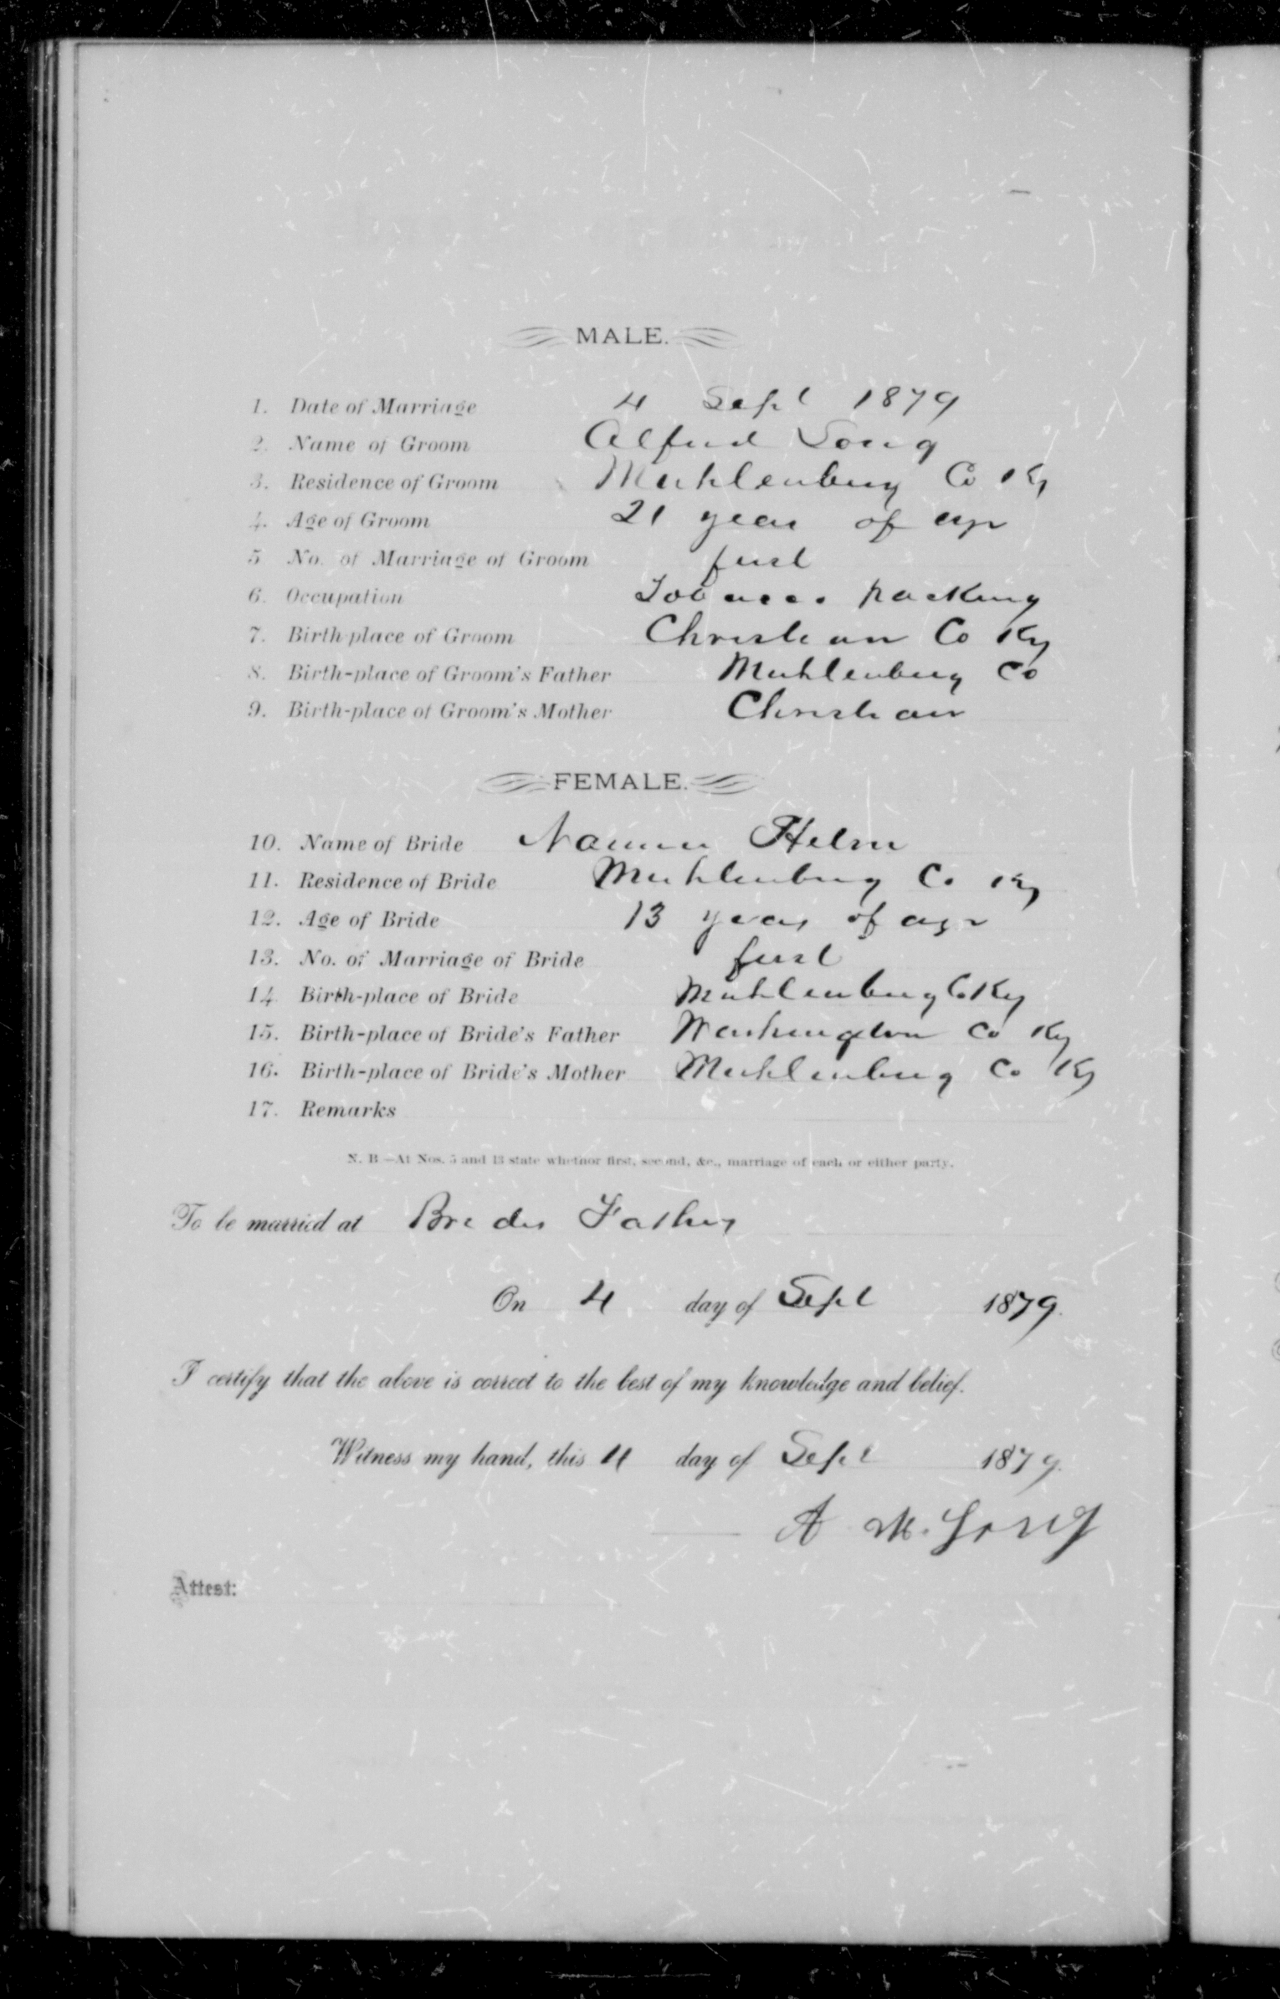 MALE.
1. Date of Marriage 4 Sept 1879
2. Name of Groom Alfred Long
3. Residence of Groom Muhlenburg Co Ky
4. Age of Groom 21 years of age
5 No. of Marriage of Groom first
6. Occupation Tobacco packing
7. Birth-place of Groom Christian Co Ky
8. Birth-place of Groom's Father Muhlenburg Co
9. Birth-place of Groom's Mother Christian
FEMALE.
10. Name of Bride Helm
11. Residence of Bride Muhlenburg Co Ky
12. Age of Bride 13 years of age
13. No. of Marriage of Bride first
14 Birth-place of Bride Muhlenburg Co Ky
15. Birth-place of Bride's Father Washington Co Ky
16. Birth-place of Bride's Mother Muhlenburg Co Ky
17. Remarks
N. B.—At Nos. 5 and 13 state whether first, second, &c., marriage of each or either party.
To be married at Brides Fathers
On 4 day of Sept 1879.
I certify that the above is correct to the best of my knowledge and belief.
Witness my hand, this 4 day of Sept 1879.
A M. Long
Attest: